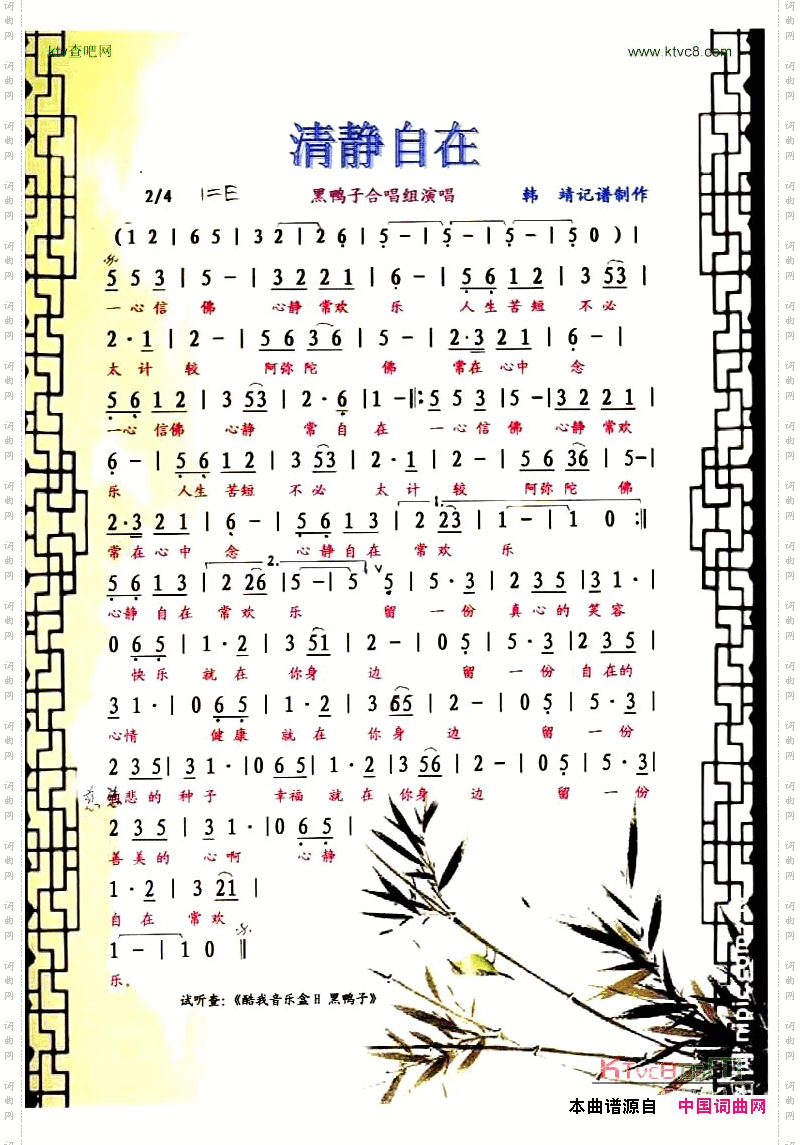 ktv查吧网
www.ktvc8.com
清静自在
2/4 1=E 黑鸭子合唱组演唱 韩 靖记谱制作
(1 2 | 6 5 | 3 2 | 2 6 | 5 - | 5 - | 5 - | 5 0 ) |
5 5 3 | 5 - | 3 2 2 1 | 6 - | 5 6 1 2 | 3 5 3 |
一心信 佛 心静 常欢 乐 人生苦短 不必
2 · 1 | 2 - | 5 6 3 6 | 5 - | 2 · 3 2 1 | 6 - |
太 计 较 阿弥陀 佛 常在心中 念
5 6 1 2 | 3 5 3 | 2 · 6 | 1 - :||: 5 5 3 | 5 - | 3 2 2 1 |
一心 信佛 心静 常 自 在 一心信 佛 心静 常欢
6 - | 5 6 1 2 | 3 5 3 | 2 · 1 | 2 - | 5 6 3 6 | 5 - |
乐 人生 苦短 不必 太 计 较 阿弥陀 佛
1.
2 · 3 2 1 | 6 - | 5 6 1 3 | 2 2 3 | 1 - | 1 0 :||
常在心中 念 心静自在 常欢 乐
2.
5 6 1 3 | 2 2 6 | 5 - | 5 ∨ 5 | 5 · 3 | 2 3 5 | 3 1 · |
心静 自在 常欢 乐 留 一份 真心的 笑容
0 6 5 | 1 · 2 | 3 5 1 | 2 - | 0 5 | 5 · 3 | 2 3 5 |
快乐 就在 你身 边 留 一份 自在的
3 1 · | 0 6 5 | 1 · 2 | 3 6 5 5 | 2 - | 0 5 | 5 · 3 |
心情 健康 就在 你身 边 留 一份
2 3 5 | 3 1 · | 0 6 5 | 1 · 2 | 3 5 6 | 2 - | 0 5 | 5 · 3 |
慈悲的 种子 幸福 就在 你身 边 留 一份
2 3 5 | 3 1 · | 0 6 5 |
善美的 心啊 心静
1 · 2 | 3 2 1 |
自在 常欢
1 - | 1 0 ||
乐。
试听查:《酷我音乐盒H 黑鸭子》
KTvc8
本曲谱源自 中国词曲网